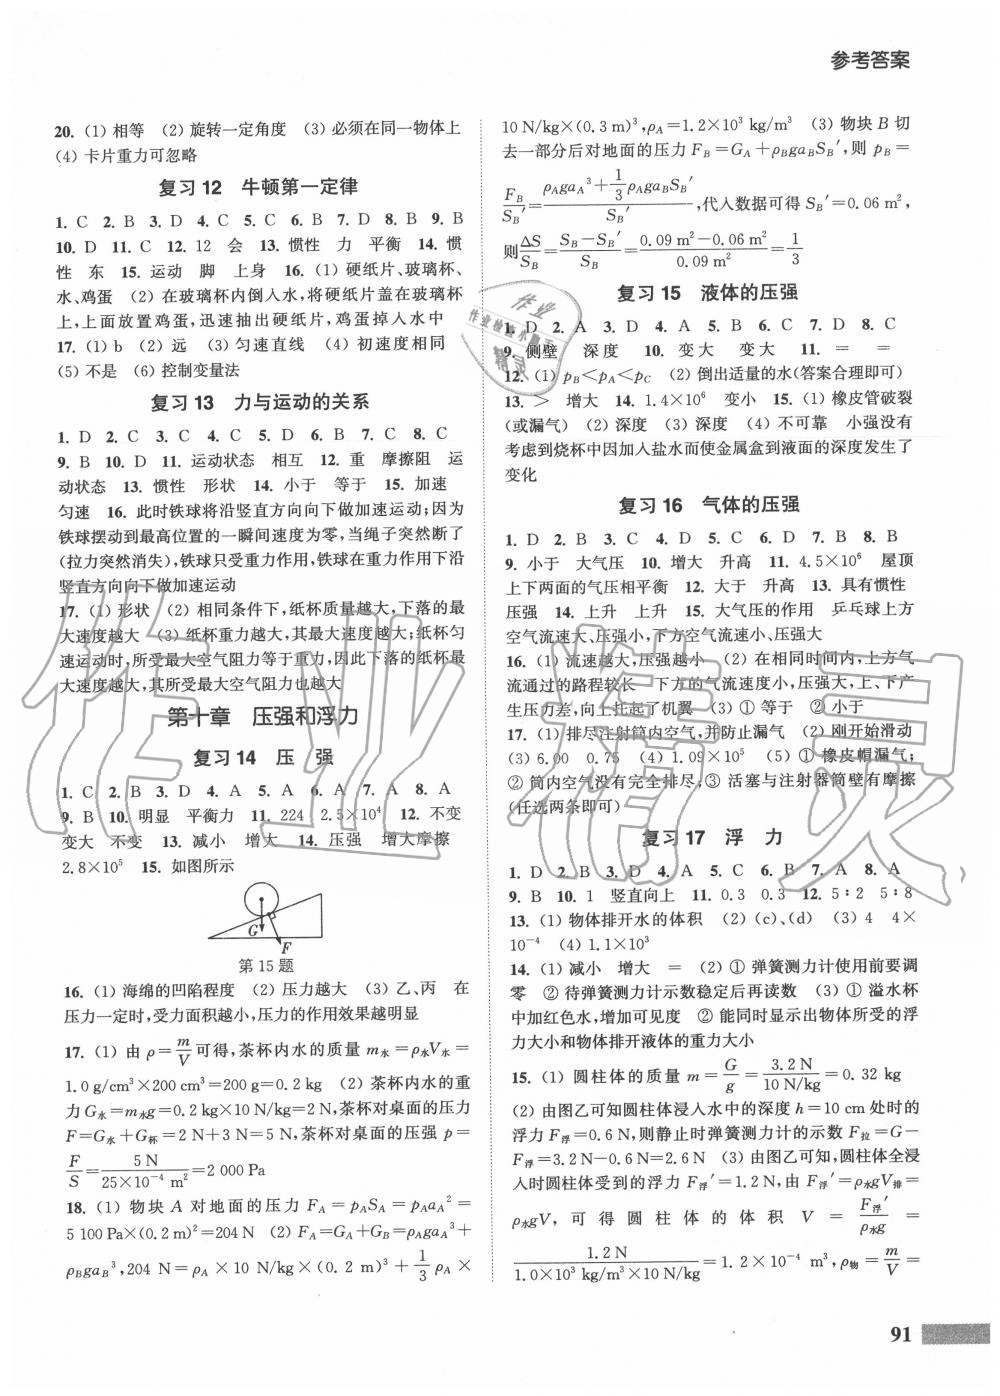 参考答案
20. (1) 相等 (2) 旋转一定角度 (3) 必须在同一物体上
(4) 卡片重力可忽略
复习 12 牛顿第一定律
1. C 2. B 3. D 4. C 5. C 6. B 7. D 8. B 9. B
10. D 11. C 12. 12 会 13. 惯性 力 平衡 14. 惯
性 东 15. 运动 脚 上身 16. (1) 硬纸片、玻璃杯、
水、鸡蛋 (2) 在玻璃杯内倒入水,将硬纸片盖在玻璃杯
上,上面放置鸡蛋,迅速抽出硬纸片,鸡蛋掉入水中
17. (1) b (2) 远 (3) 匀速直线 (4) 初速度相同
(5) 不是 (6) 控制变量法
复习 13 力与运动的关系
1. D 2. C 3. C 4. C 5. D 6. B 7. C 8. C
9. B 10. D 11. 运动状态 相互 12. 重 摩擦阻 运
动状态 13. 惯性 形状 14. 小于 等于 15. 加速
匀速 16. 此时铁球将沿竖直方向向下做加速运动;因为
铁球摆动到最高位置的一瞬间速度为零,当绳子突然断了
(拉力突然消失),铁球只受重力作用,铁球在重力作用下沿
竖直方向向下做加速运动
17. (1) 形状 (2) 相同条件下,纸杯质量越大,下落的最
大速度越大 (3) 纸杯重力越大,其最大速度越大;纸杯匀
速运动时,所受最大空气阻力等于重力,因此下落的纸杯最
大速度越大,其所受最大空气阻力也越大
第十章 压强和浮力
复习 14 压 强
1. C 2. B 3. D 4. A 5. A 6. A 7. A 8. A
9. B 10. 明显 平衡力 11. 224 2.5×10⁴ 12. 不变
变大 不变 13. 减小 增大 14. 压强 增大摩擦
2.8×10⁵ 15. 如图所示
G F
第 15 题
16. (1) 海绵的凹陷程度 (2) 压力越大 (3) 乙、丙 在
压力一定时,受力面积越小,压力的作用效果越明显
17. (1) 由 ρ=m/V 可得,茶杯内水的质量 m水=ρ水V水=
1.0 g/cm³×200 cm³=200 g=0.2 kg (2) 茶杯内水的重
力 G水=m水g=0.2 kg×10 N/kg=2 N,茶杯对桌面的压力
F=G水+G杯=2 N+3 N=5 N,茶杯对桌面的压强 p=
F/S=5 N/(25×10⁻⁴ m²)=2 000 Pa
18. (1) 物块 A 对地面的压力 F_A=p_AS_A=p_Aa_A²=
5 100 Pa×(0.2 m)²=204 N (2) F_A=G_A+G_B=ρ_Aga_A³+
ρ_Bga_B³,204 N=ρ_A×10 N/kg×(0.2 m)³+1/3 ρ_A×
10 N/kg×(0.3 m)³,ρ_A=1.2×10³ kg/m³ (3) 物块 B 切
去一部分后对地面的压力 F_B=G_A+ρ_Bga_BS_B′,则 p_B=
F_B/S_B′=(ρ_Aga_A³+1/3 ρ_Aga_BS_B′)/S_B′,代入数据可得 S_B′=0.06 m²,
则 ΔS/S_B=(S_B−S_B′)/S_B=(0.09 m²−0.06 m²)/0.09 m²=1/3
复习 15 液体的压强
1. D 2. A 3. D 4. A 5. B 6. C 7. D 8. C
9. 侧壁 深度 10. 变大 变大 11. = =
12. (1) p_B<p_A<p_C (2) 倒出适量的水(答案合理即可)
13. > 增大 14. 1.4×10⁶ 变小 15. (1) 橡皮管破裂
(或漏气) (2) 深度 (3) 深度 (4) 不可靠 小强没有
考虑到烧杯中因加入盐水而使金属盒到液面的深度发生了
变化
复习 16 气体的压强
1. D 2. B 3. C 4. D 5. C 6. D 7. B 8. B
9. 小于 大气压 10. 增大 升高 11. 4.5×10⁶ 屋顶
上下两面的气压相平衡 12. 大于 升高 13. 具有惯性
压强 14. 上升 上升 15. 大气压的作用 乒乓球上方
空气流速大、压强小,下方空气流速小、压强大
16. (1) 流速越大,压强越小 (2) 在相同时间内,上方气
流通过的路程较长 下方气流的流速小,压强大,上、下产
生压力差,向上托起了机翼 (3) ① 等于 ② 小于
17. (1) 排尽注射筒内空气,并防止漏气 (2) 刚开始滑动
(3) 6.00 0.75 (4) 1.09×10⁵ (5) ① 橡皮帽漏气;
② 筒内空气没有完全排尽;③ 活塞与注射器筒壁有摩擦
(任选两条即可)
复习 17 浮 力
1. D 2. B 3. D 4. A 5. C 6. B 7. A 8. A
9. B 10. 1 竖直向上 11. 0.3 0.3 12. 5∶2 5∶8
13. (1) 物体排开水的体积 (2) (c)、(d) (3) 4 4×
10⁻⁴ (4) 1.1×10³
14. (1) 减小 增大 = (2) ① 弹簧测力计使用前要调
零 ② 待弹簧测力计示数稳定后再读数 (3) ① 溢水杯
中加红色水,增加可见度 ② 能同时显示出物体所受的浮
力大小和物体排开液体的重力大小
15. (1) 圆柱体的质量 m=G/g=3.2 N/(10 N/kg)=0.32 kg
(2) 由图乙可知圆柱体浸入水中的深度 h=10 cm 处时的
浮力 F浮=0.6 N,则静止时弹簧测力计的示数 F拉=G−
F浮=3.2 N−0.6 N=2.6 N (3) 由图乙可知,圆柱体全浸
入时圆柱体受到的浮力 F浮′=1.2 N,由 F浮′=ρ水gV排=
ρ水gV,可得圆柱体的体积 V=F浮′/(ρ水g)=
1.2 N/(1.0×10³ kg/m³×10 N/kg)=1.2×10⁻⁴ m³,ρ物=m/V=
91
作业精灵
作业
作业检查小助手
精灵